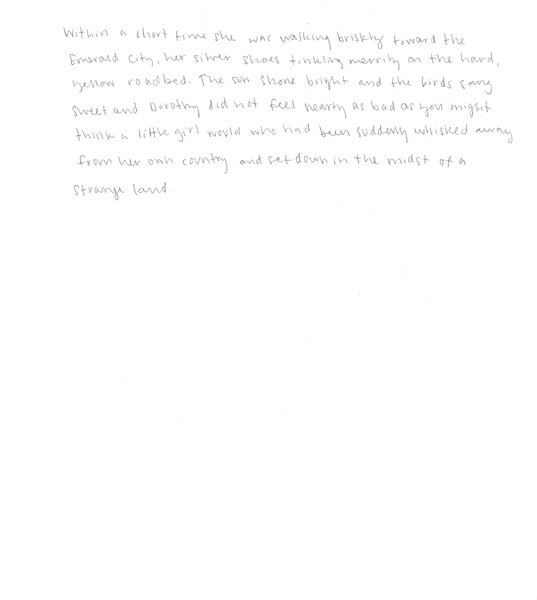 Within a short time she was walking briskly toward the
Emerald City, her silver shoes tinkling merrily on the hard,
yellow roadbed. The sun shone bright and the birds sang
sweet and Dorothy did not feel nearly as bad as you might
think a little girl would who had been suddenly whisked away
from her own country and set down in the midst of a
strange land.